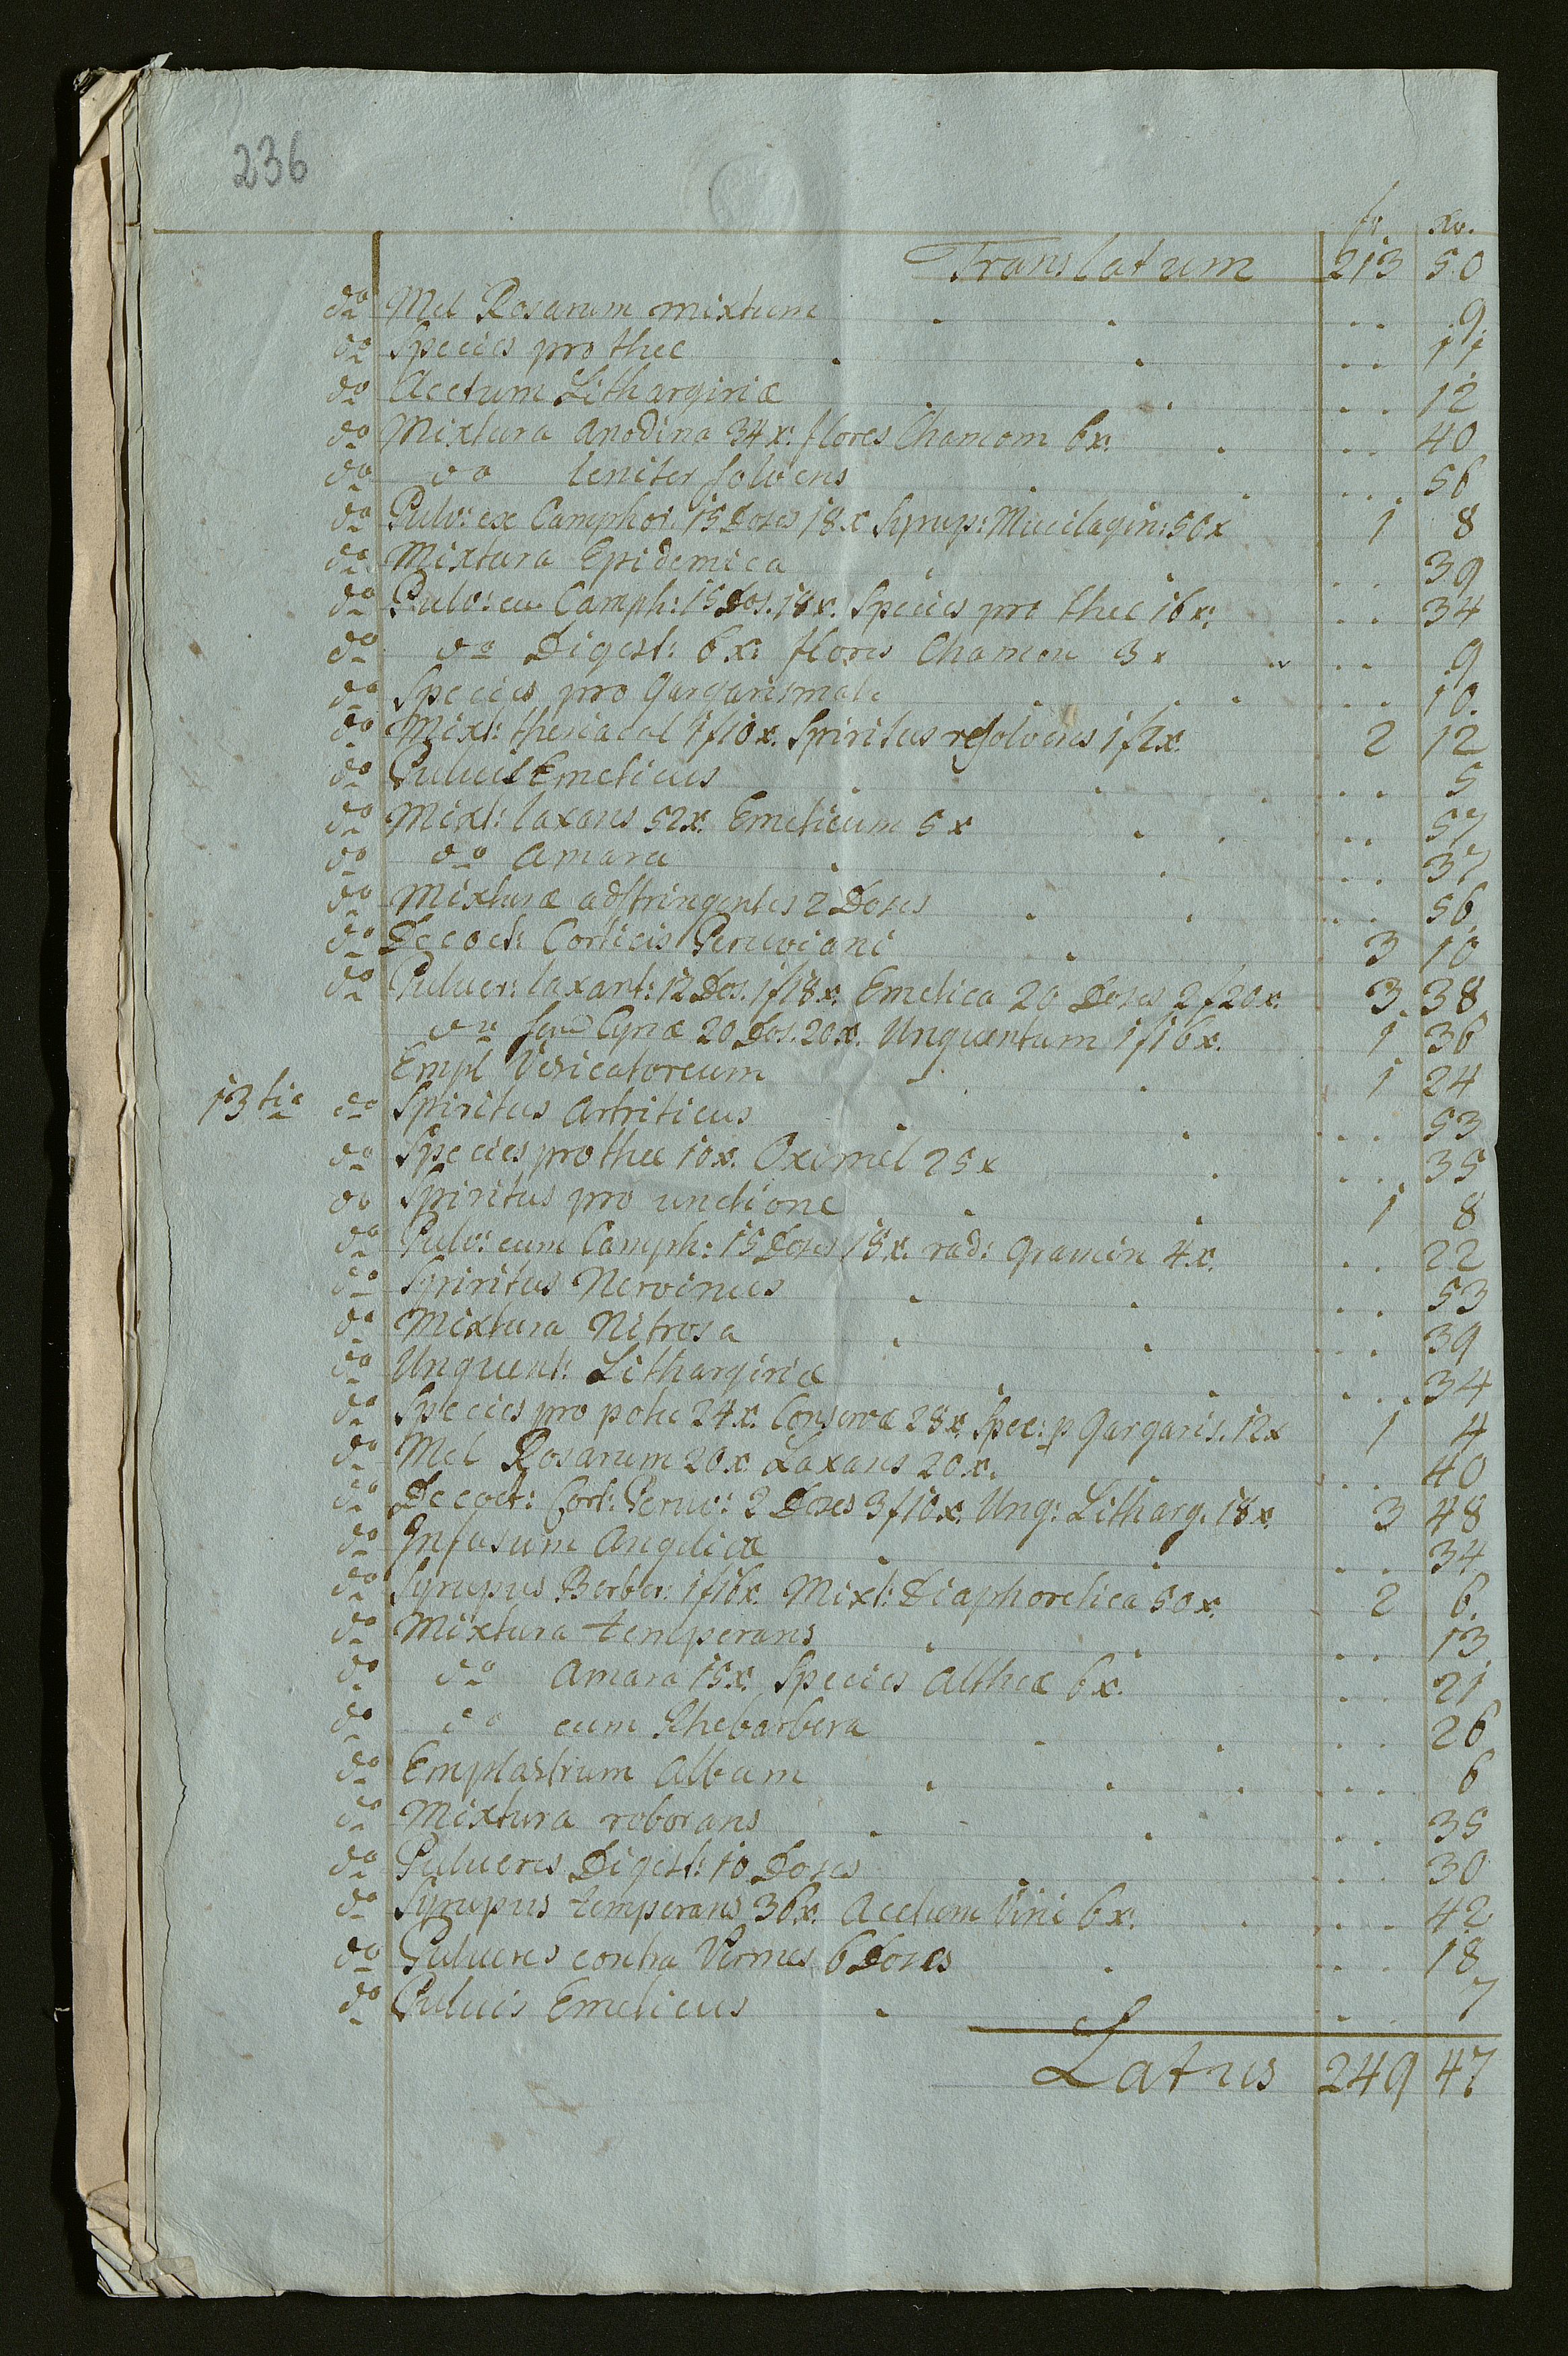 236
fr. xr.
Translatum 213 50
do Mel Rosarum mixtum . . .. 9.
do Species pro thee . . .. 11
do Acetum Lithargiriæ . . .. 12
do Mixtura anodina 34x: flores Chamom 6x: . .. 40
do do leniter solvens . ... 56
do Pulv: ex Camphor. 15 Doses 18x Syrup: Mucilagin: 50x 1 8
do Mixtura Epidemica . . .. 39
do Pulv: cu Camph: 15 Dos. 18x. Species pro thee 16x: .. 34
do do Digest: 6x: flores Chamom 3x .. 9
do Species pro gargarismate . . . ... 10.
do Mixt: theriacal 1f10x. Spiritus resolvens 1f2x. 2 12
do Pulvis Emeticus . . . .. 5
do Mixt: laxans 52x. Emeticum 5x . . .. 57
do do amara . . .. 37
do Mixturæ adstringentes 2 Doses . . .. 56.
do Decoct: Corticis Peruviani . 3 10
do Pulver: laxant: 12 Dos. 1f18x. Emetica 20 Doses 2f20x. 3. 38
do Cyriæ 20 Dos. 20x. Unguentum 1f16x. 1 36
Empl Vesicatoreum . . 1 24
13tia do Spiritus Artriticus . . ... 53
do Species pro thee 10x. Oximel 25x . ... 35
do Spiritus pro unctione . . 1 8
do Pulv: cum Camph: 15 Doses 18x. rad: Gramin 4x. .. 22
do Spiritus Nervinus . . ... 53
do Mixtura Nitrosa . . ... 39
do Unguent: Lithargiriæ . . ... 34
do Species pro potu 24x. Conservæ 28x. Spec: p Gargaris. 12x 1 4
do Mel Rosarum 20x. Laxans 20x. ... 40
do Decoct: Cort: Peruv: 2 Doses 3f10x. Ung: Litharg. 18x. 3 48
do Infusum Angelicæ . . ... 34
do Syrupus Berber: 1f16x. Mixt: Diaphoretica 50x. 2 6.
do Mixtura temperans . . ... 13
do do Amara 15x. Species Altheæ 6x. ... 21
do do cum Rhebarbera . . ... 26
do Emplastrum Album . . . ... 6
do Mixtura roborans . . ... 35
do Pulveres Digest: 10 Doses ... 30
do Syrupus temperans 36x. Acetum Vini 6x. . ... 42
do Pulveres contra Vermes 6 Doses . ... 18
do Pulvis Emeticus . .. 7
Latus 249 47